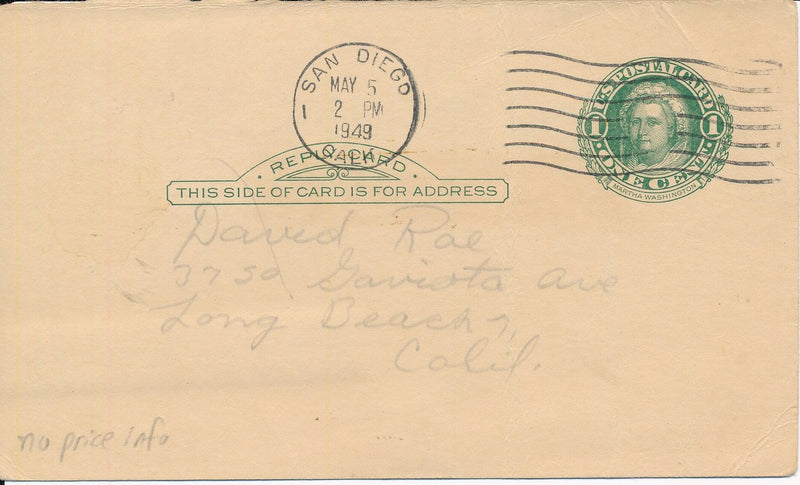 SAN DIEGO
MAY 5
2 PM
1949
CALIF.
1
U.S. POSTAL CARD
1 1
ONE CENT
MARTHA WASHINGTON
· REPLY CARD ·
THIS SIDE OF CARD IS FOR ADDRESS
David Rae
3750 Gaviota Ave
Long Beach 7,
Calif.
no price info